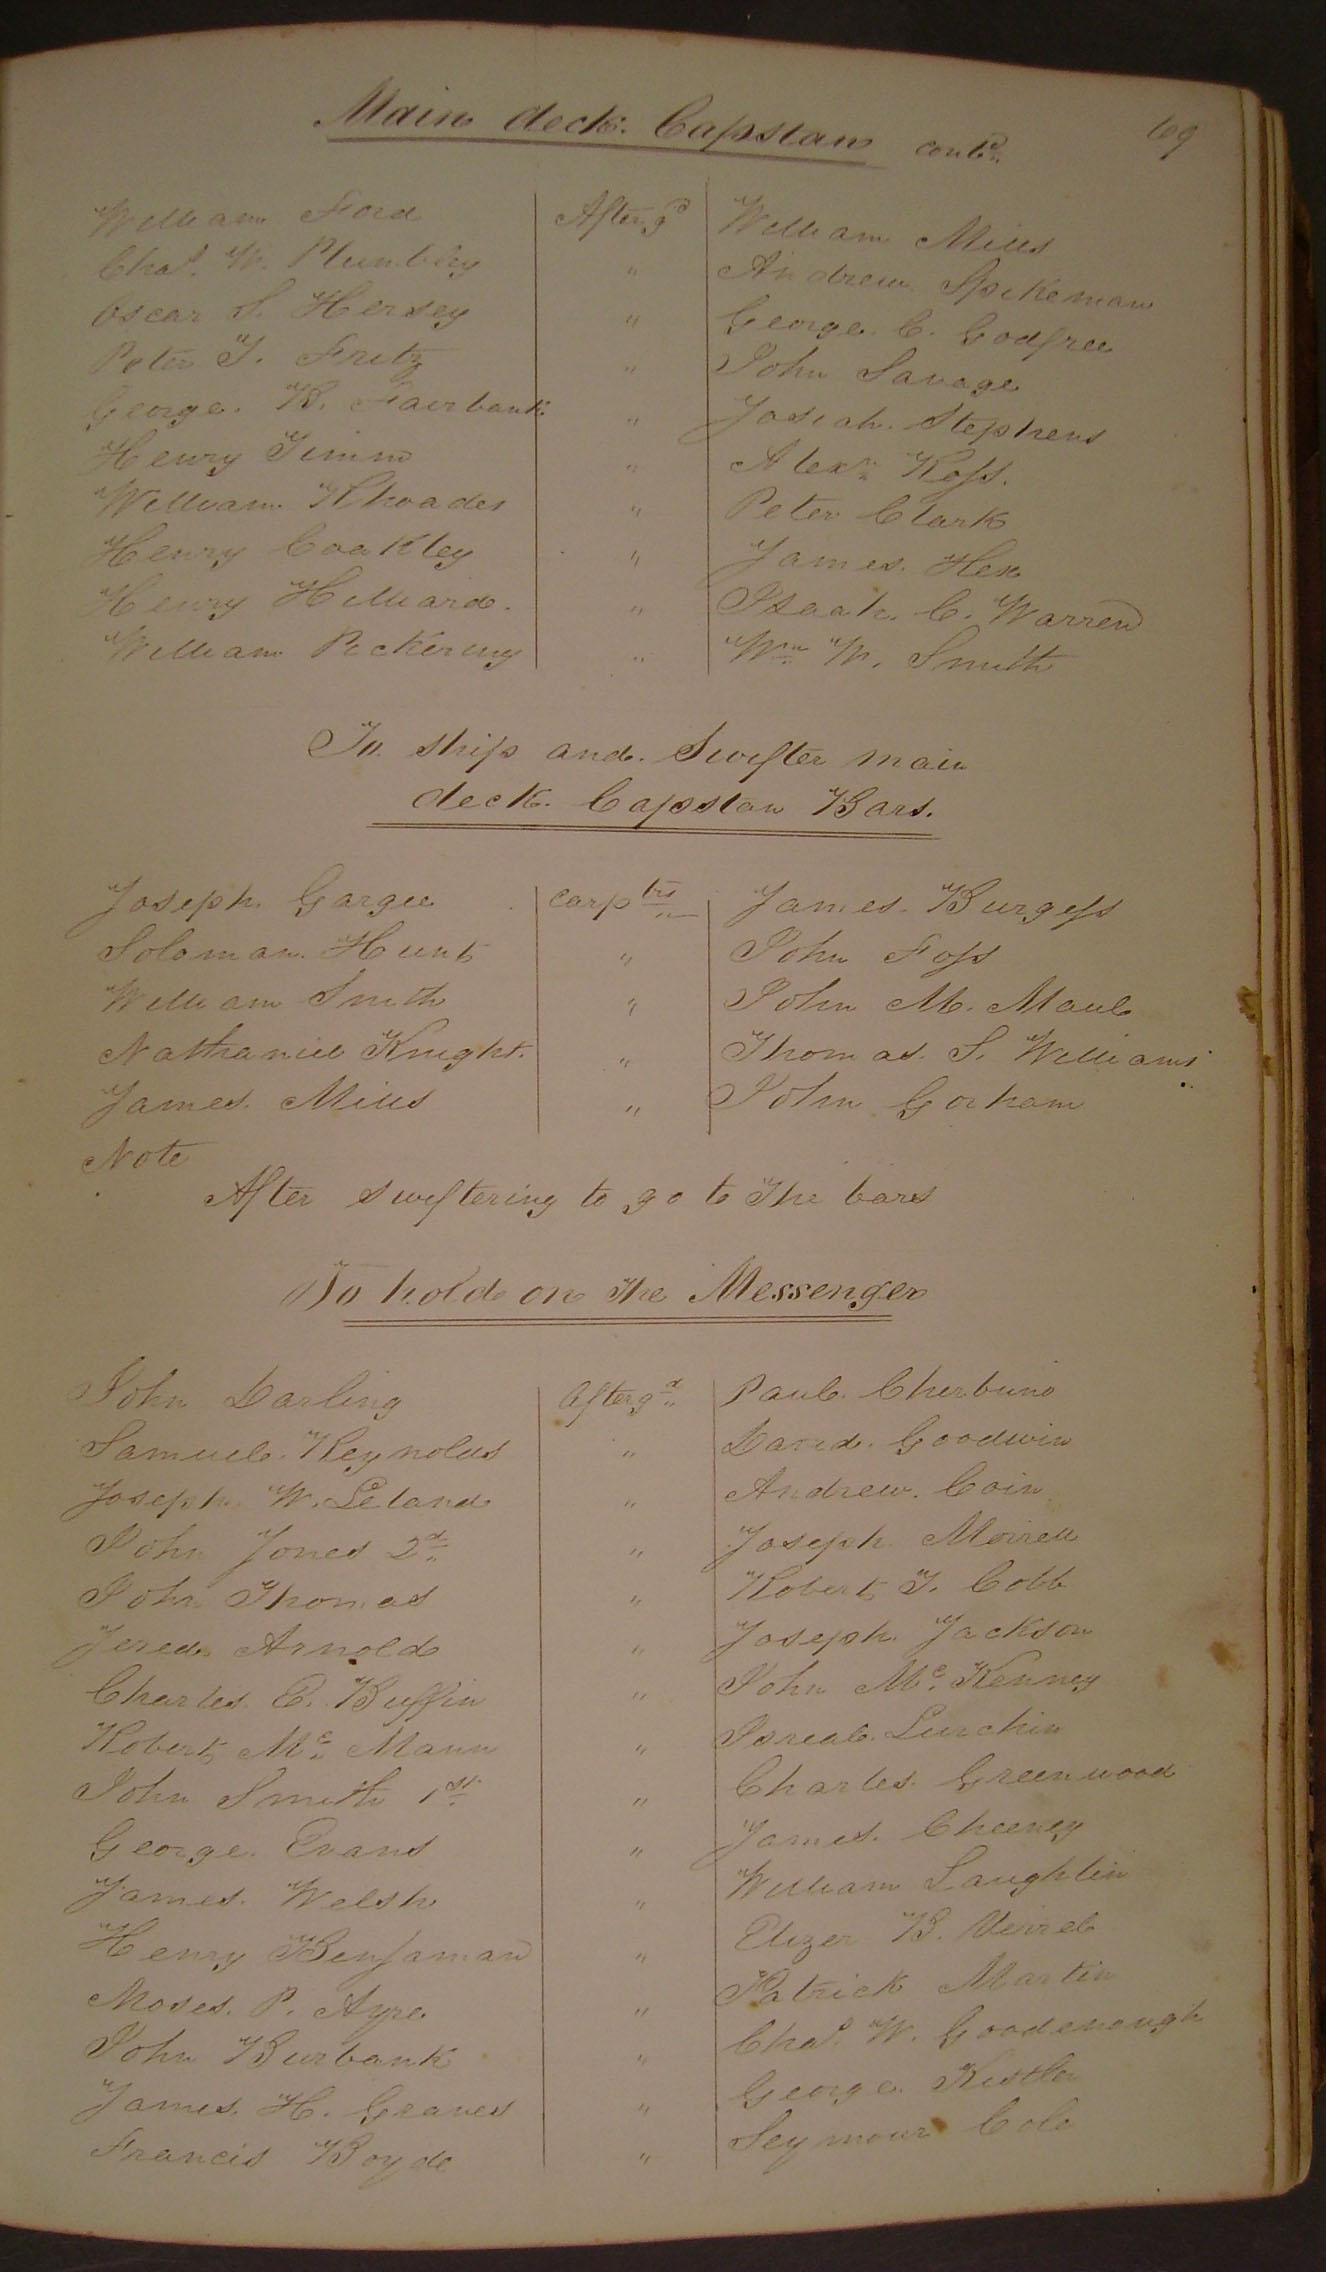 Main deck. Capstan contd
69
William Ford Aftergd William Mills
Chas. W. Plumbley " Andrew Spikeman
Oscar S. Hersey " George C. Godfree
Peter T. Fritz " John Savage
George. B. Fairbank " Josiah. Stephens
Henry Timm " Alexr Ross.
William Rhoades " Peter Clark
Henry Coakley " James. Hex
Henry Hilliard. " Isaah. C. Warren
William Pickering " Wm W. Smith
To ship and Swifter main
deck. Capstan Bars.
Joseph. Gargee carptrs James. Burgess
Soloman. Hunt " John Foss
William Smith " John M. Maul
Nathaniel Knight. " Thomas. S. Williams
James. Mills " John Gorham
Note
After swiftering to go to the bars
To hold on the Messenger
John Darling Aftergd Paul. Cherbuno
Samuel. Reynolds " David. Goodwin
Joseph W. Leland " Andrew. Coin
John Jones 2d " Joseph Morrell
John Thomas " Robert T. Cobb
Jered Arnold " Joseph. Jackson
Charles. E. Buffin " John Mc. Kenney
Robert Mc Mann " Isreal. Lurchin
John Smith 1st " Charles. Greenwood
George. Evans " James. Cheeney
James. Welsh " William Laughlin
Henry Benjaman " Elizer B. Verrel
Moses. P. Ayre " Patrick Martin
John Burbank " Chas. W. Goodenough
James. H. Graves " George Kestler
Francis Boyde " Seymour Cole